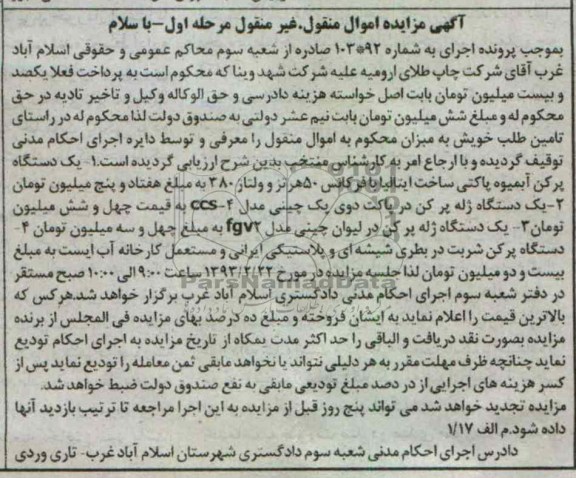 آگهی مزایده اموال منقول.غیر منقول مرحله اول-با سلام
بموجب پرونده اجرای به شماره ۱۰۳*۹۲ صادره از شعبه سوم محاکم عمومی و حقوقی اسلام آباد
غرب آقای شرکت چاپ طلای ارومیه علیه شرکت شهد وینا که محکوم است به پرداخت فعلا یکصد
و بیست میلیون تومان بابت اصل خواسته هزینه دادرسی و حق الوکاله وکیل و تاخیر تادیه در حق
محکوم له و مبلغ شش میلیون تومان بابت نیم عشر دولتی به صندوق دولت لذا محکوم له در راستای
تامین طلب خویش به میزان محکوم به اموال منقول را معرفی و توسط دایره اجرای احکام مدنی
توقیف گردیده و با ارجاع امر به کارشناس منتخب بدین شرح ارزیابی گردیده است.۱- یک دستگاه
پر کن آبمیوه پاکتی ساخت ایتالیا با فرکانس ۵۰هرتز و ولتاژ ۳۸۰ به مبلغ هفتاد و پنج میلیون تومان
۲-یک دستگاه ژله پر کن در پاکت دوی پک چینی مدل ccs-۴ به قیمت چهل و شش میلیون
تومان۳- یک دستگاه ژله پر کن در لیوان چینی مدل fgv۲ به مبلغ چهل و سه میلیون تومان ۴-
دستگاه پر کن شربت در بطری شیشه ای و پلاستیکی ایرانی و مستعمل کارخانه آب ایست به مبلغ
بیست و دو میلیون تومان لذا جلسه مزایده در مورخ ۱۳۹۳/۲/۲۲ ساعت ۹:۰۰ الی ۱۰:۰۰ صبح مستقر
در دفتر شعبه سوم اجرای احکام مدنی دادگستری اسلام آباد غرب برگزار خواهد شد.هرکس که
بالاترین قیمت را اعلام نماید به ایشان فروخته و مبلغ ده درصد بهای مزایده فی المجلس از برنده
مزایده بصورت نقد دریافت و الباقی را حد اکثر مدت یمکاه از تاریخ مزایده به اجرای احکام تودیع
نماید چنانچه ظرف مهلت مقرر به هر دلیلی نتواند یا نخواهد مابقی ثمن معامله را تودیع نماید پس از
کسر هزینه های اجرایی از در دصد مبلغ تودیعی مابقی به نفع صندوق دولت ضبط خواهد شد.
مزایده تجدید خواهد شد می تواند پنج روز قبل از مزایده به این اجرا مراجعه تا ترتیب بازدید آنها
داده شود.م الف ۱/۱۷
دادرس اجرای احکام مدنی شعبه سوم دادگستری شهرستان اسلام آباد غرب- تاری وردی
ParsNamadData